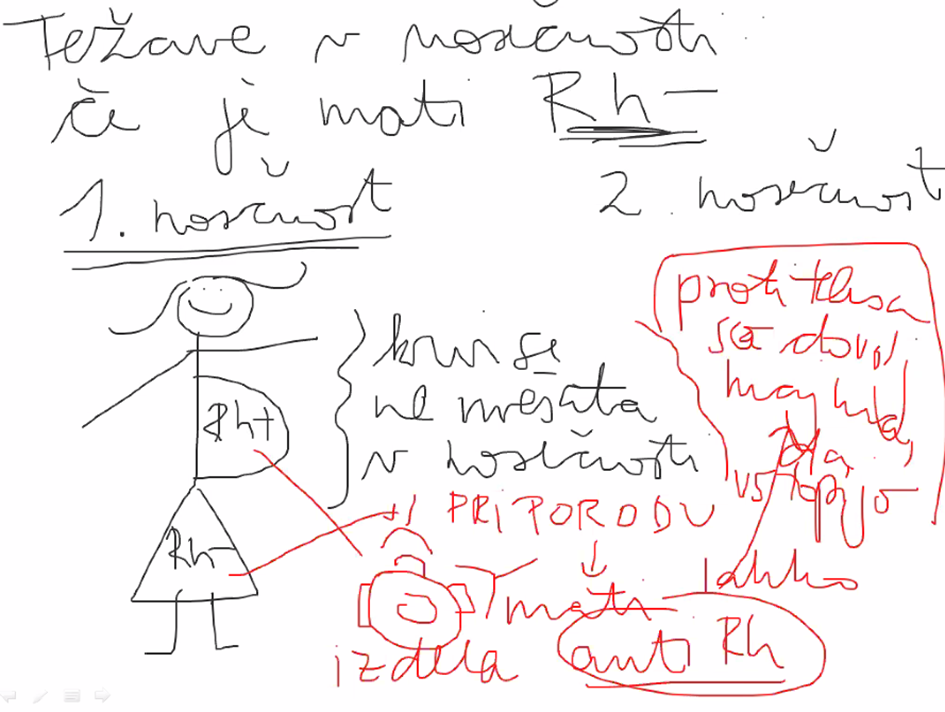 Težave v nosečnosti
če je mati Rh-
1. nosečnost
2. nosečnost
Rh+
Rh-
krvi se
ne mešata
v nosečnosti
PRI PORODU
mati
izdela anti Rh
protitelesa
so dovolj
majhna,
da
vstopijo
lahko